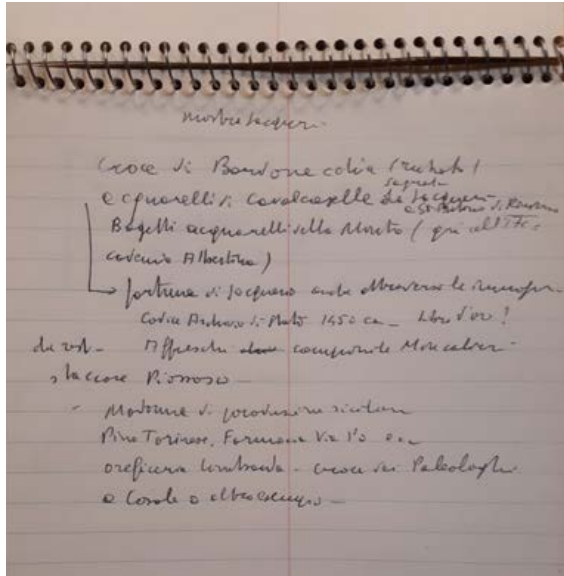 mostra Jaqueri -
Croce di Bardonecchia (rubata)
acquarelli di Cavalcaselle da Jaqueri
segreta
e St Antonio di Ranverso
Bagetti acquarelli della Novalesa (qui all'Ac-
cademia Albertina)
fortuna di Jaquerio anche attraverso le
Codice Archivio di Stato 1450 ca - libro d'oro ?
da ved - Affreschi campanile Moncalieri -
staccare Piossasco -
- Madonna di produzione siciliana
Pino Torinese, Via Po
oreficeria lombarda - croce dei Paleologhi
a Casale o altro esempio -